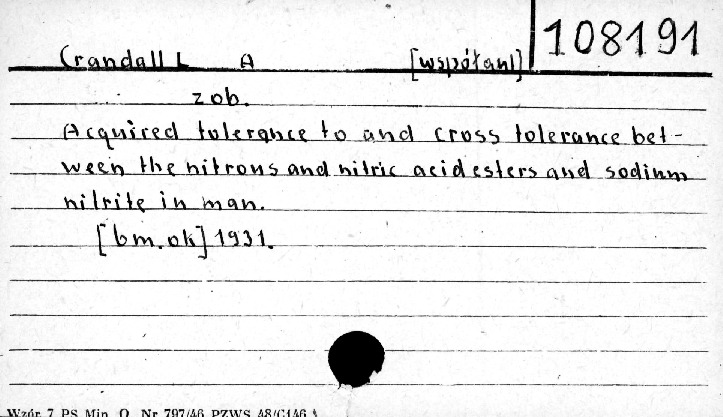 108191
Crandall L A [współaut]
zob.
Acquired tolerance to and cross tolerance bet-
ween the nitrous and nitric acid esters and sodium
nitrite in man.
[bm. ok] 1931.
Wzór 7 PS Min. O. Nr 797/46 PZWS 48/C146